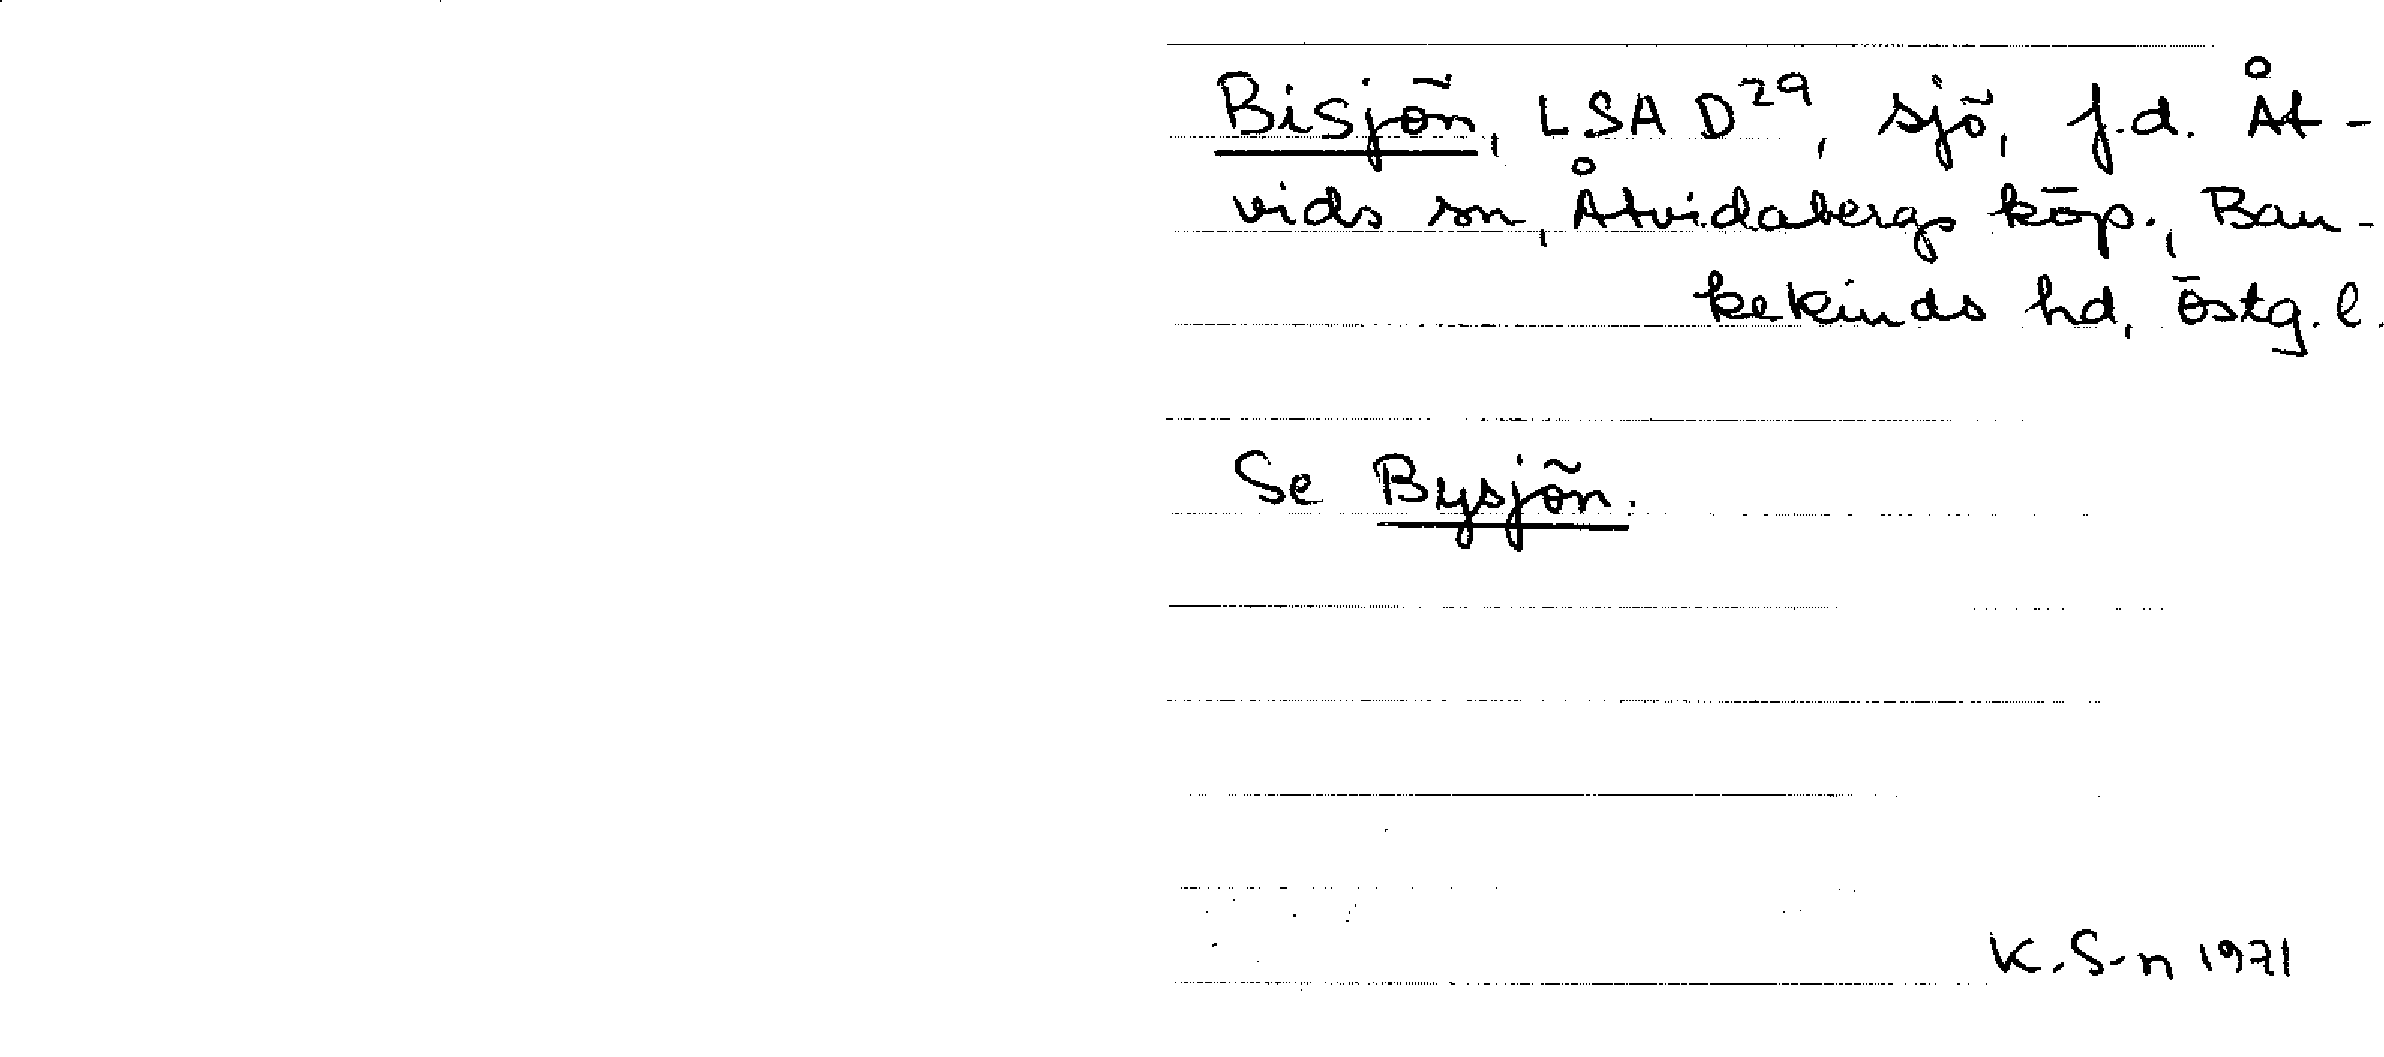 Bisjön, LSA D²⁹, sjö, f.d. Åt-
vids sn, Åtvidabergs köp., Ban-
kekinds hd, Östg. l.
Se Bysjön.
K. S-n 1971